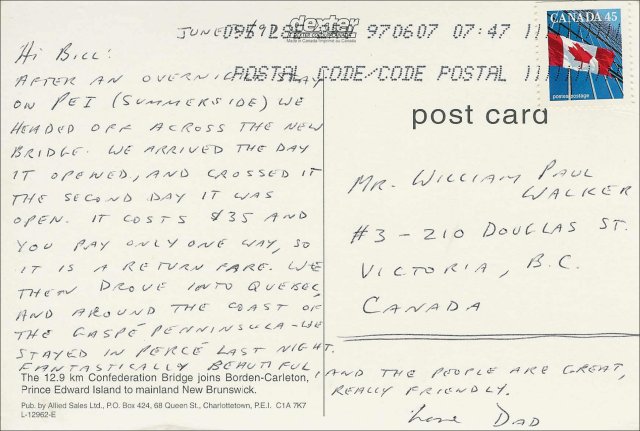 JUNE
dexter
Made in Canada/Imprimé au Canada
970607 07:47
POSTAL CODE/CODE POSTAL
CANADA 45
postes postage
post card
HI BILL:
AFTER AN OVERNIGHT STAY
ON PEI (SUMMERSIDE) WE
HEADED OFF ACROSS THE NEW
BRIDGE. WE ARRIVED THE DAY
IT OPENED, AND CROSSED IT
THE SECOND DAY IT WAS
OPEN. IT COSTS $35 AND
YOU PAY ONLY ONE WAY, SO
IT IS A RETURN FARE. WE
THEN DROVE INTO QUEBEC,
AND AROUND THE COAST OF
THE GASPÉ PENNINSULA-WE
STAYED IN PERCÉ LAST NIGHT.
FANTASTICALLY BEAUTIFUL, AND THE PEOPLE ARE GREAT,
REALLY FRIENDLY.
Love DAD
MR. WILLIAM PAUL
WALKER
#3-210 DOUGLAS ST.
VICTORIA, B.C.
CANADA
The 12.9 km Confederation Bridge joins Borden-Carleton,
Prince Edward Island to mainland New Brunswick.
Pub. by Allied Sales Ltd., P.O. Box 424, 68 Queen St., Charlottetown, P.E.I. C1A 7K7
L-12962-E